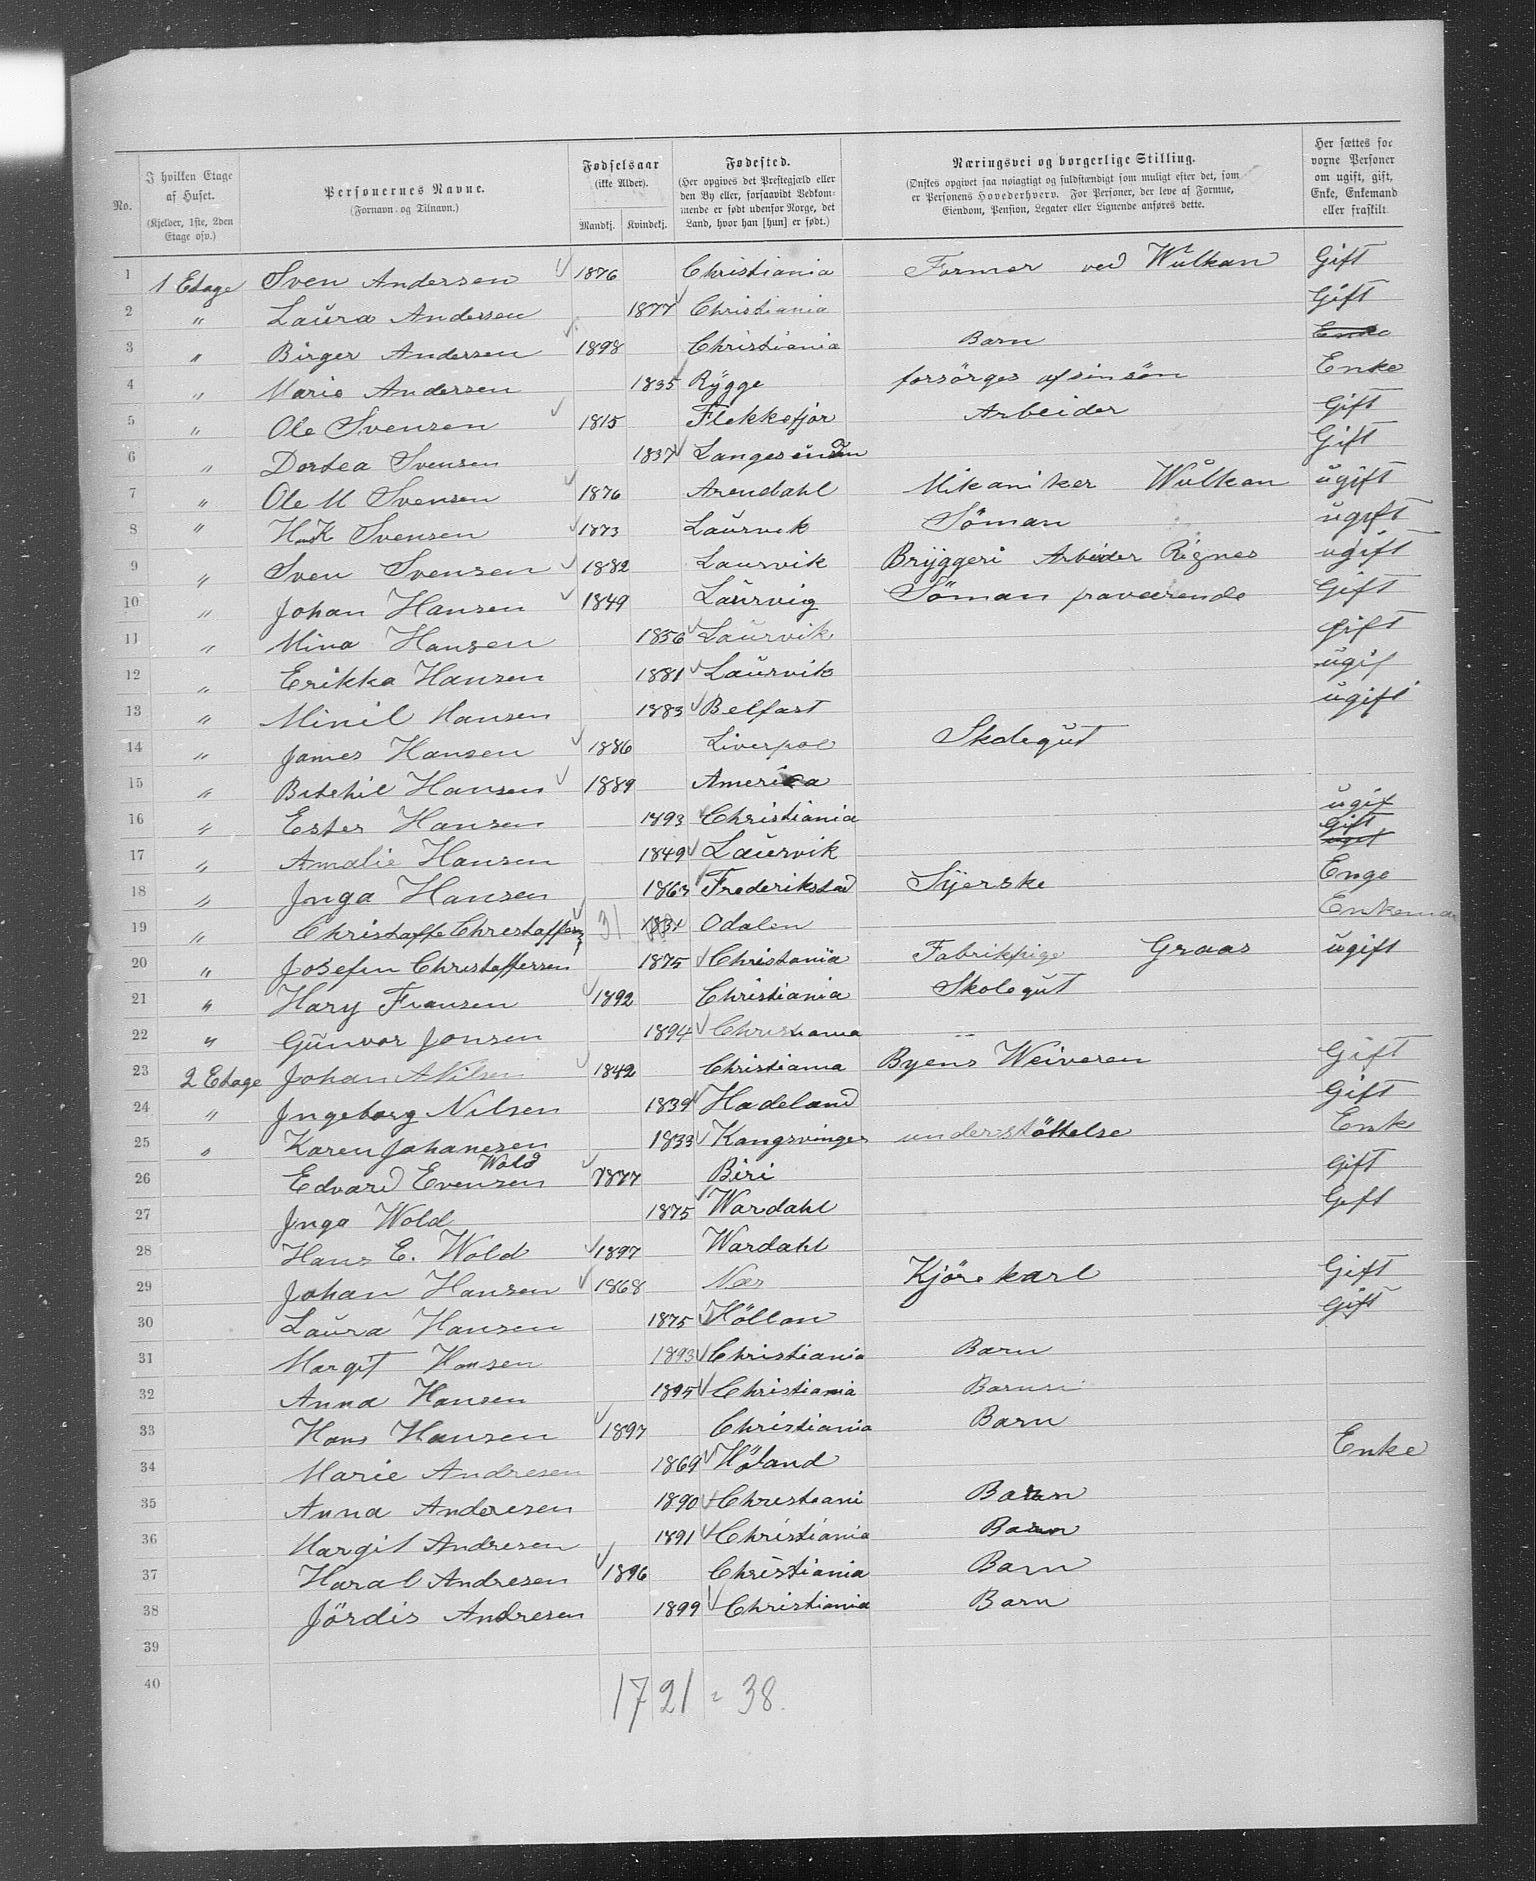 No.
I hvilken Etage af Huset.
(Kjelder, 1ste, 2den Etage osv.)
Personernes Navne.
(Fornavn og Tilnavn.)
Fødselsaar
(ikke Alder).
Mandkj. Kvindekj.
Fødested.
(Her opgives det Prestegjæld eller den By eller, forsaavidt Vedkommende er født udenfor Norge, det Land, hvor han [hun] er født.)
Næringsvei og borgerlige Stilling.
(Ønskes opgivet saa nøiagtigt og fuldstændigt som muligt efter det, som er Personens Hovederhverv. For Personer, der leve af Formue, Eiendom, Pension, Legater eller Lignende anføres dette.
Her sættes for voxne Personer om ugift, gift, Enke, Enkemand eller fraskilt
1 1 Etage Sven Andersen 1876 Christiania Former ved Wulkan Gift
2 " Laura Andersen 1877 Christiania Gift
3 " Birger Andersen 1898 Christiania Barn Enke
4 " Marie Andersen 1835 Rygge forsörges af sin sön Enke
5 " Ole Svensen 1815 Flekkefjor Arbeider Gift
6 " Dortea Svensen 1837 Gift
7 " Ole M Svensen 1876 Arendahl Mikaniker Wulkan ugift
8 " Svensen 1873 Laurvik Söman ugift
9 " Sven Svensen 1882 Laurvik Bryggeri Arbeider Rignes ugift
10 " Johan Hansen 1849 Laurvig Söman fraværende Gift
11 " Mina Hansen 1856 Laurvik gift
12 " Erikka Hansen 1881 Laurvik ugif
13 " Minil Hansen 1883 Belfast ugift
14 " James Hansen 1886 Liverpol Skolegut
15 " Hansen 1889 America
16 " Ester Hansen 1893 Christiania ugif
17 " Amalie Hansen 1849 Laurvik gift ugift
18 " Inga Hansen 1863 Frederikstad Syerske Enge
19 " Christaffe Christaffersen 31 1831 Odalen Enkeman
20 " Josefin Christaffersen 1875 Christania Fabrikpige Graas ugift
21 " Hary Fransen 1892 Christiania Skolegut
22 " Gunvor Jonsen 1894 Christiania
23 2 Etage Johan A Nilsen 1842 Christiania Byens Weiveren Gift
24 " Ingeborg Nilsen 1839 Hadeland Gift
25 " Karen Johanesen 1833 Kangsvinger understöttelse Enk
26 Edvard Evensen Wold 1877 Biri gift
27 Inga Wold 1875 Wardahl Gift
28 Hans E. Wold 1897 Wardahl
29 Johan Hansen 1868 Næs Kjörekarl Gift
30 Laura Hansen 1875 Höllan Gift
31 Margit Hansen 1893 Christiania Barn
32 Anna Hansen 1895 Christiania
33 Hans Hansen 1897 Christiania Barn
34 Marie Andresen 1869 Höland Enke
35 Anna Anderesen 1890 Christiani Barn
36 Margit Andresen 1891 Christiania Barn
37 Haral Andresen 1896 Christiania Barn
38 Jördis Andresen 1899 Christiania Barn
39
40
17 21 = 38